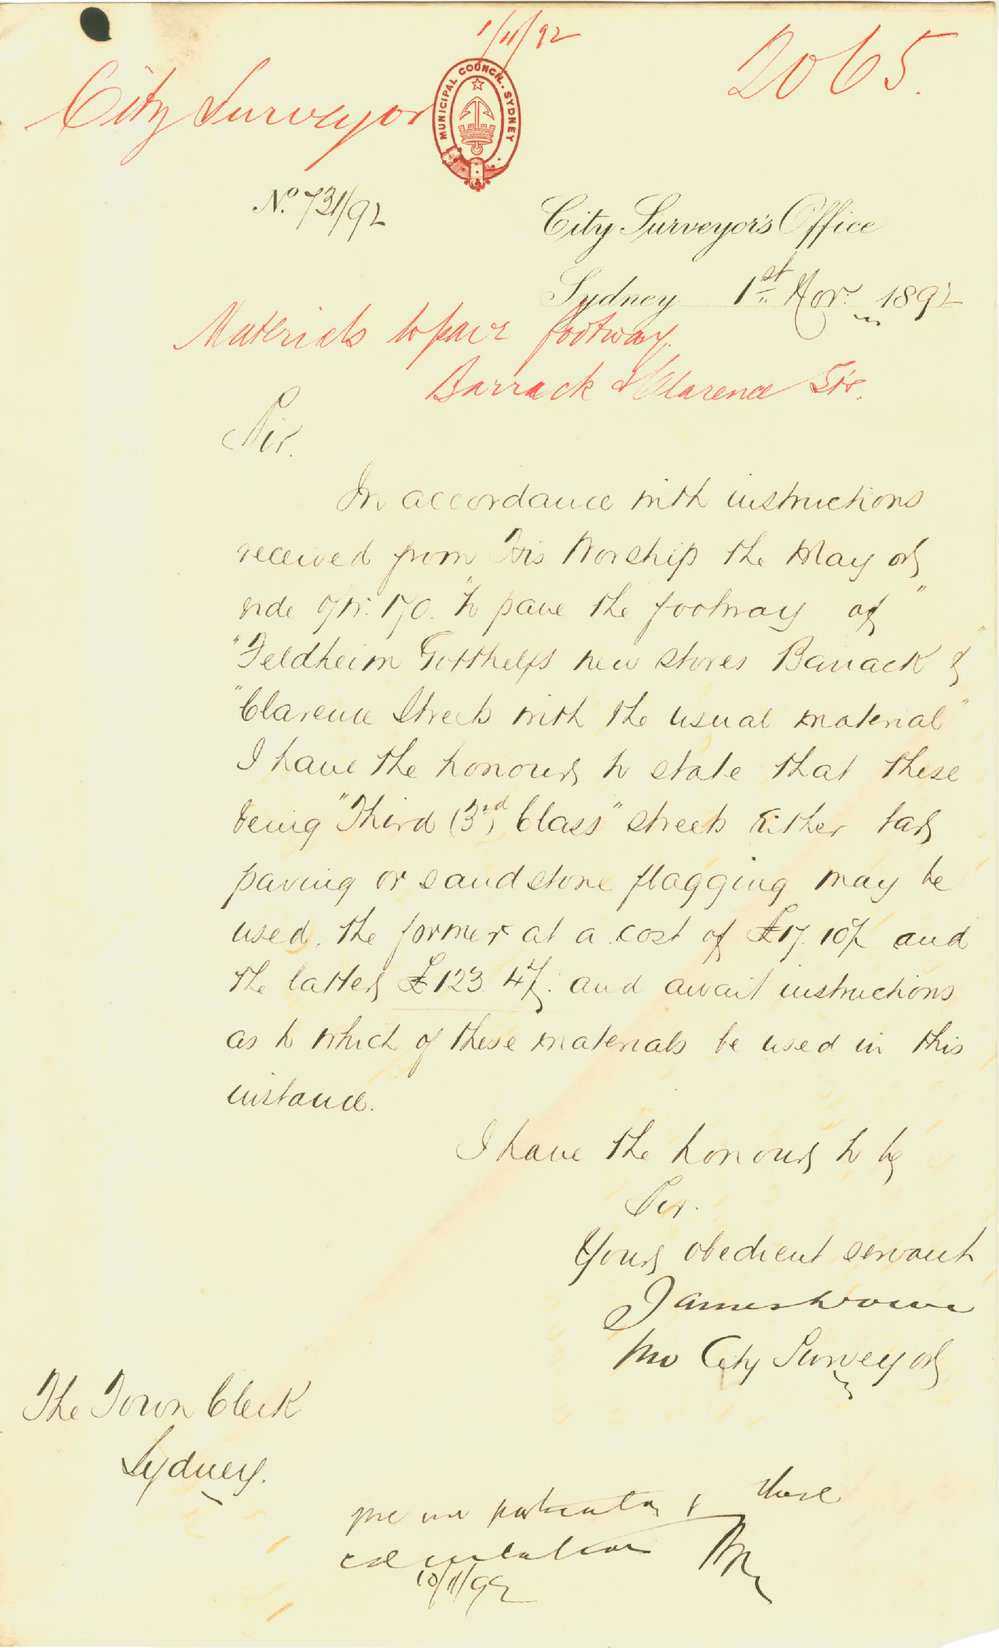 1/11/92
2065.
City Surveyor
MUNICIPAL COUNCIL. SYDNEY
No. 731/92
City Surveyor's Office
Sydney 1st Nov. 1892
Materials to pave footway.
Barrack & Clarence Sts.
Sir.
In accordance with instructions
received from His Worship the Mayor
vide 170. "to pave the footway of"
"Feldheim Gotthelfs new stores Barrack &"
"Clarence Streets with the usual material"
I have the honour to state that these
being "Third (3rd) Class" streets either tar
paving or sandstone flagging may be
used, the former at a cost of £17. 10/- and
the latter £123 4/-. and await instructions
as to which of these materials be used in this
instance.
I have the honour to be
Sir.
Your obedient servant
James
City Surveyor
The Town Clerk
Sydney.
give me particulars & these
10/11/92